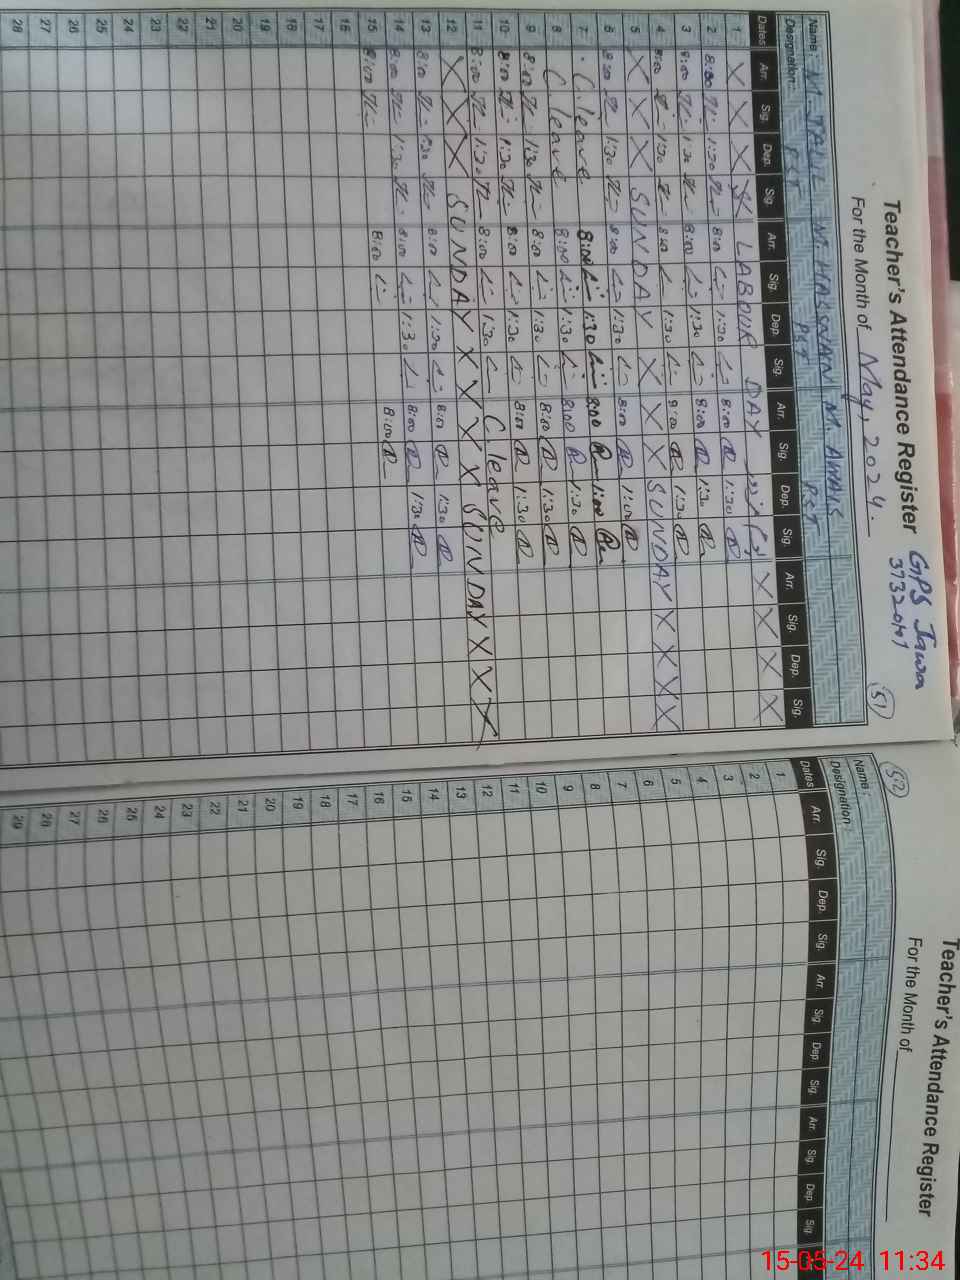 Teacher's Attendance Register
GPS Jawa
37320141
51
For the Month of May, 2024.
Name: M. JALIL M. HASSNAIN M. AWAIS
Designation: PST PST PST
Dates Arr. Sig. Dep. Sig. Arr. Sig. Dep. Sig. Arr. Sig. Dep. Sig. Arr. Sig. Dep. Sig.
1 X X X X LABOUR DAY X X X X
2 8:00 1:30 8:00 1:30 8:00 1:30
3 8:00 1:30 8:00 1:30 8:00 1:30
4 8:00 1:30 8:00 1:30 8:00 1:30
5 X X X SUNDAY X X X SUNDAY X X X X
6 8:00 1:30 8:00 1:30 8:00 1:00
7 C. leave 8:00 1:30 8:00 1:00
8 C. leave 8:00 1:30 8:00 1:30
9 8:00 1:30 8:00 1:30 8:00 1:30
10 8:00 1:30 8:00 1:30 8:00 1:30
11 8:00 1:30 8:00 1:30 C. leave
12 X X X SUNDAY X X X X SUNDAY X X X
13 8:00 1:30 8:00 1:30 8:00 1:30
14 8:00 1:30 8:00 1:30 8:00 1:30
15 8:00 8:00 8:00
16
17
18
19
20
21
22
23
24
25
26
27
28
Teacher's Attendance Register
52
For the Month of
Name:
Designation
Dates Arr. Sig. Dep. Sig. Arr. Sig. Dep. Sig. Arr. Sig. Dep. Sig.
1
2
3
4
5
6
7
8
9
10
11
12
13
14
15
16
17
18
19
20
21
22
23
24
25
26
27
28
29
15-05-24 11:34